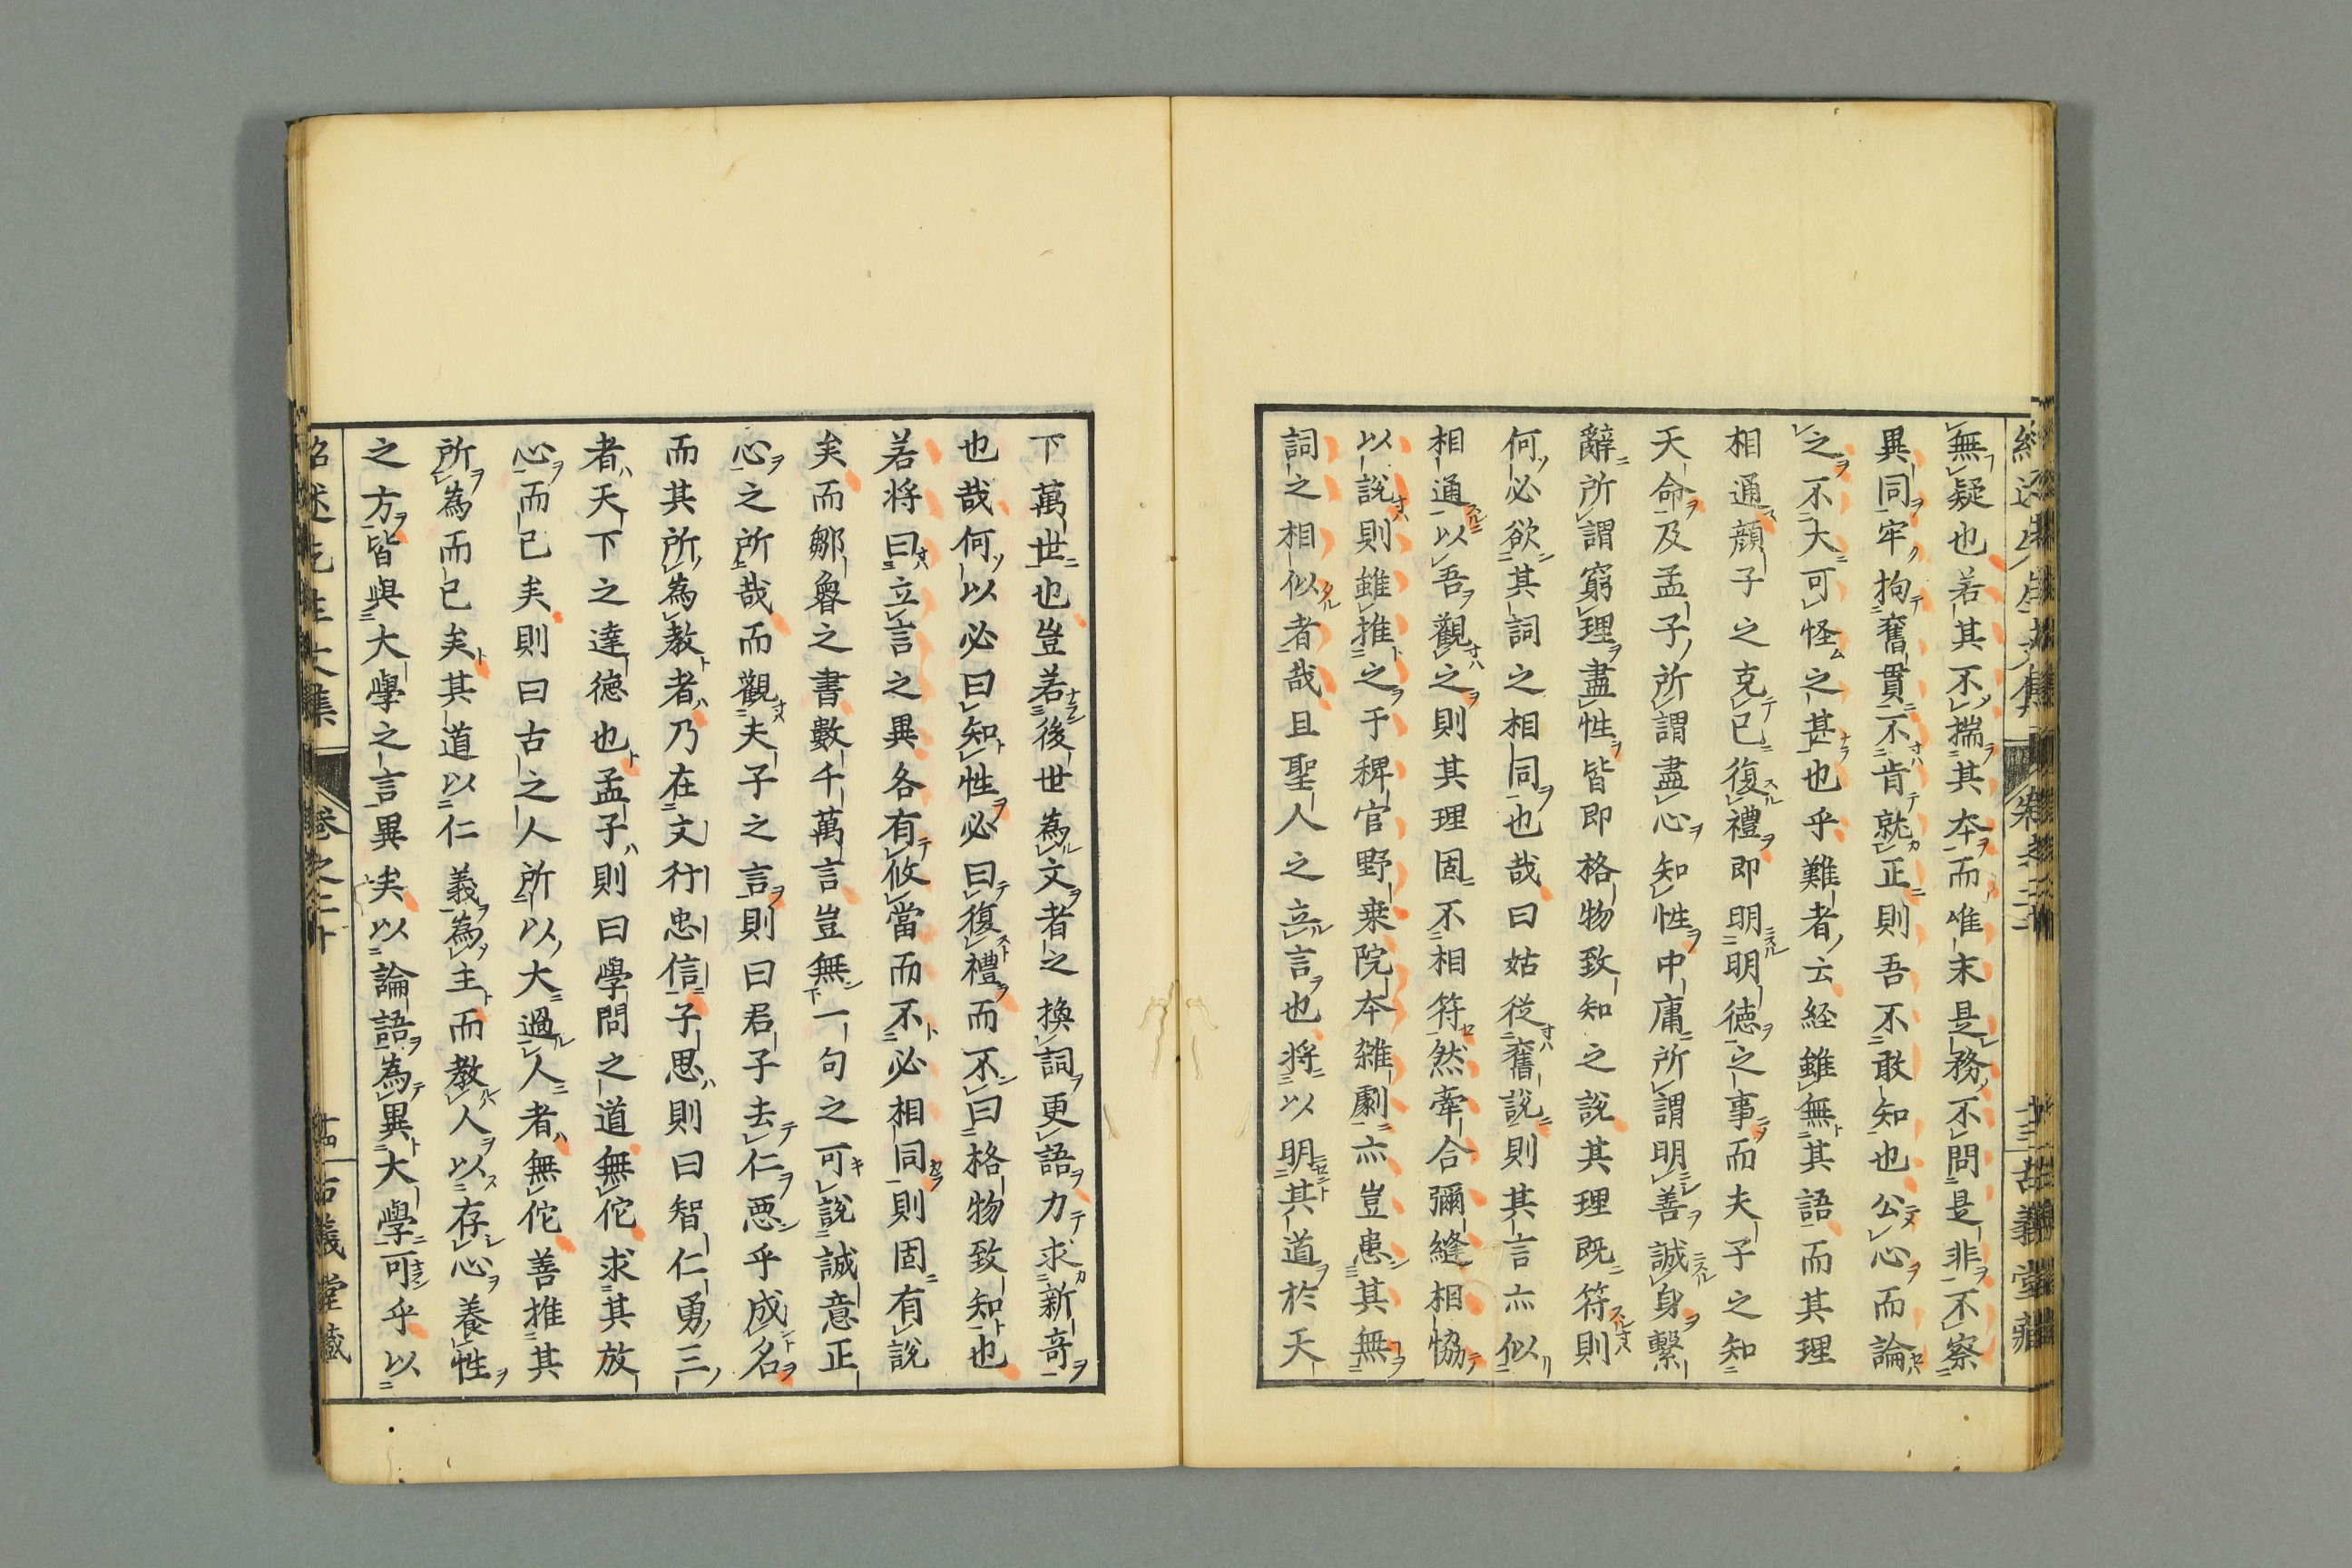 無疑也若其不揣其夲而唯末是務不問是非不察
異同牢拘舊貫不肯就正則吾不敢知也公心而論
之不大可怪之甚也乎難者云経雖無其語而其理
相通顔子之克己復禮即明明徳之事而夫子之知
天命及孟子所謂盡心知性中庸所謂明善誠身繫
辭所謂窮理盡性皆即格物致知之說其理既符則
何必欲其詞之相同也哉曰姑従舊說則其言亦似
相通以吾觀之則其理固不相符然牽合彌縫相恊
以說則雖推之于稗官野乗院夲雜劇亦豈患其無
詞之相似者哉且聖人之立言也将以明其道於天
下萬世也豈若後世為文者之換詞更語力求新竒
也哉何以必曰知性必曰復禮而不曰格物致知也
若将曰立言之異各有攸當而不必相同則固有說
矣而鄒魯之書數千萬言豈無一句之可說誠意正
心之所哉而觀夫子之言則曰君子去仁惡乎成名
而其所為教者乃在文行忠信子思則曰智仁勇三
者天下之達徳也孟子則曰學問之道無佗求其放
心而已矣則曰古之人所以大過人者無佗善推其
所為而已矣其道以仁義為主而教人以存心養性
之方皆與大學之言異矣以論語為異大學可乎以
紹述先生文集 卷之二十 古義堂藏